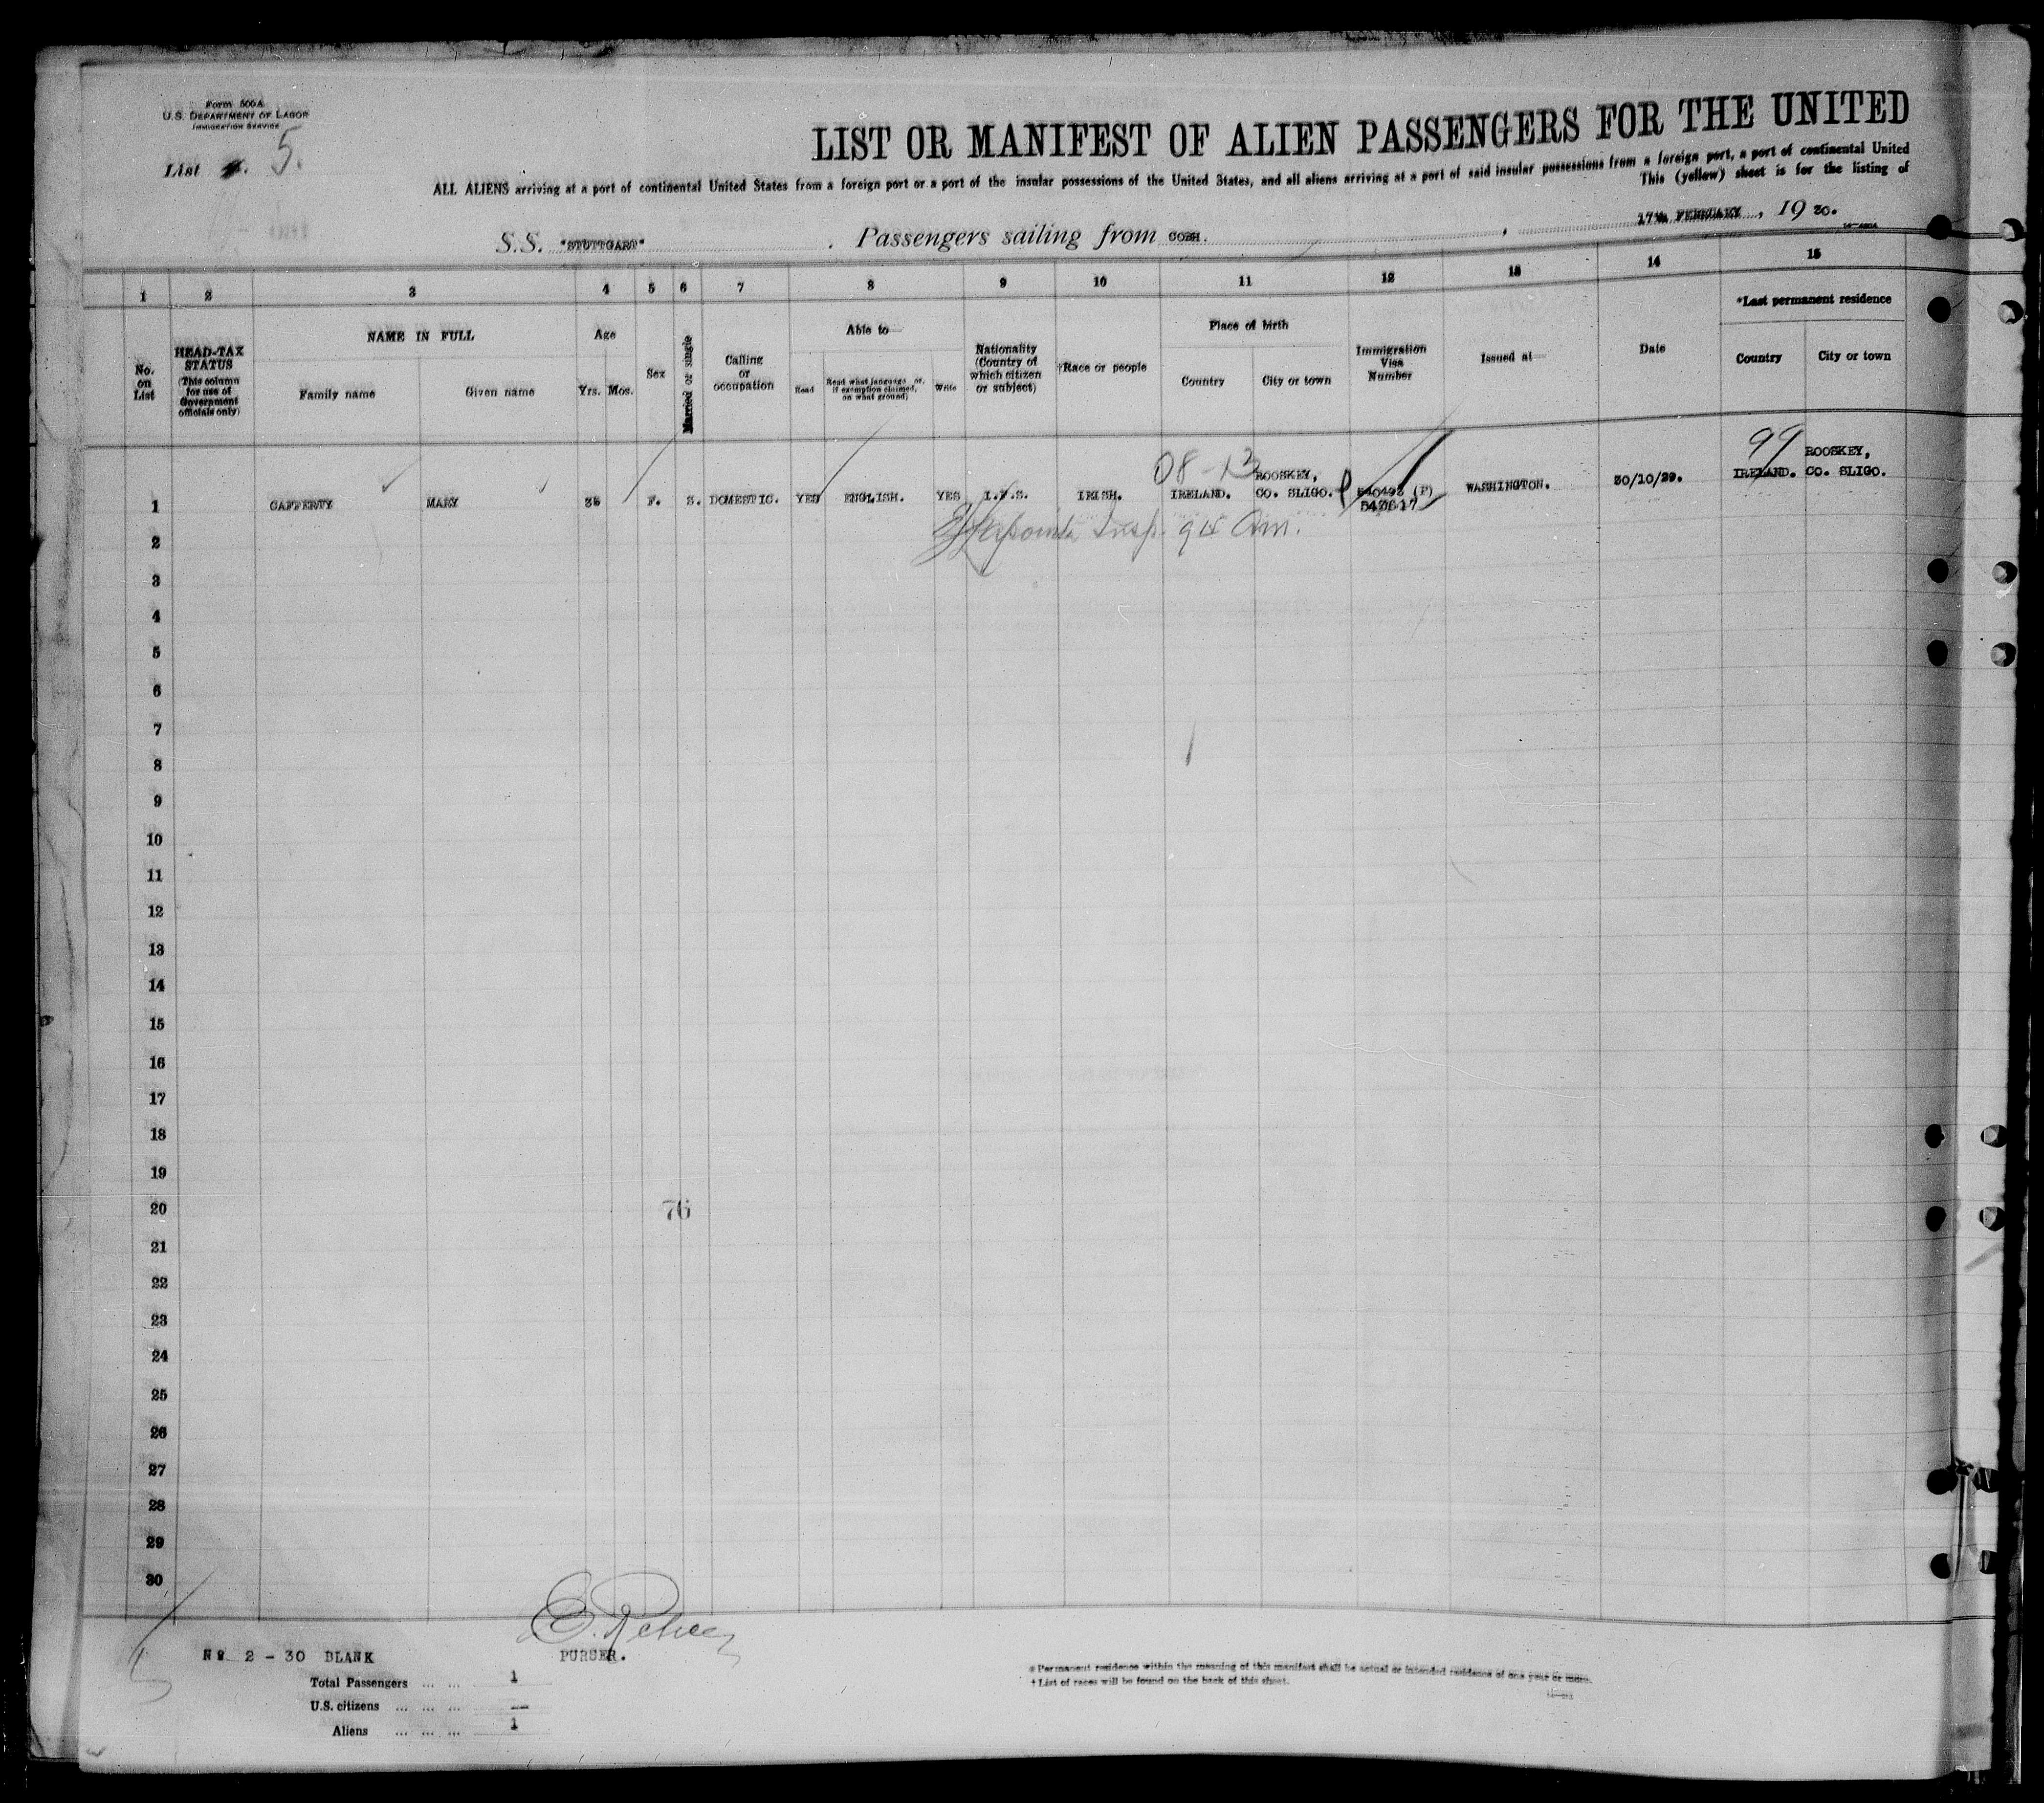 Form 500A
U.S. DEPARTMENT OF LABOR
IMMIGRATION SERVICE
List 5.
LIST OR MANIFEST OF ALIEN PASSENGERS FOR THE UNITED
ALL ALIENS arriving at a port of continental United States from a foreign port or a port of the insular possessions of the United States, and all aliens arriving at a port of said insular possessions from a foreign port, a port of continental United
This (yellow) sheet is for the listing of
S.S. "STUTTGART" . Passengers sailing from COBH. , 17th FEBRUARY , 19 30.
1 2 3 4 5 6 7 8 9 10 11 12 13 14 15
No. on List
HEAD-TAX STATUS (This column for use of Government officials only)
NAME IN FULL
Family name Given name
Age
Yrs. Mos.
Sex
Married or single
Calling or occupation
Able to—
Read
Read what language or, if exemption claimed, on what ground)
Write
Nationality (Country of which citizen or subject)
†Race or people
Place of birth
Country City or town
Immigration Visa Number
Issued at—
Date
*Last permanent residence
Country City or town
08-13 99
1 CAFFERTY MARY F. S. DOMESTIC. YES ENGLISH. YES I.F.S. IRISH. IRELAND. ROOSKEY, CO. SLIGO. WASHINGTON. 30/10/29. IRELAND. ROOSKEY, CO. SLIGO.
2 Insp.
3
4
5
6
7
8
9
10
11
12
13
14
15
16
17
18
19
20 76
21
22
23
24
25
26
27
28
29
30
Nº 2 - 30 BLANK
PURSER.
Total Passengers ... ... 1
U.S. citizens ... ... ... —
Aliens ... ... ... 1
* Permanent residence within the meaning of this manifest shall be actual or intended residence of one year or more.
† List of races will be found on the back of this sheet.